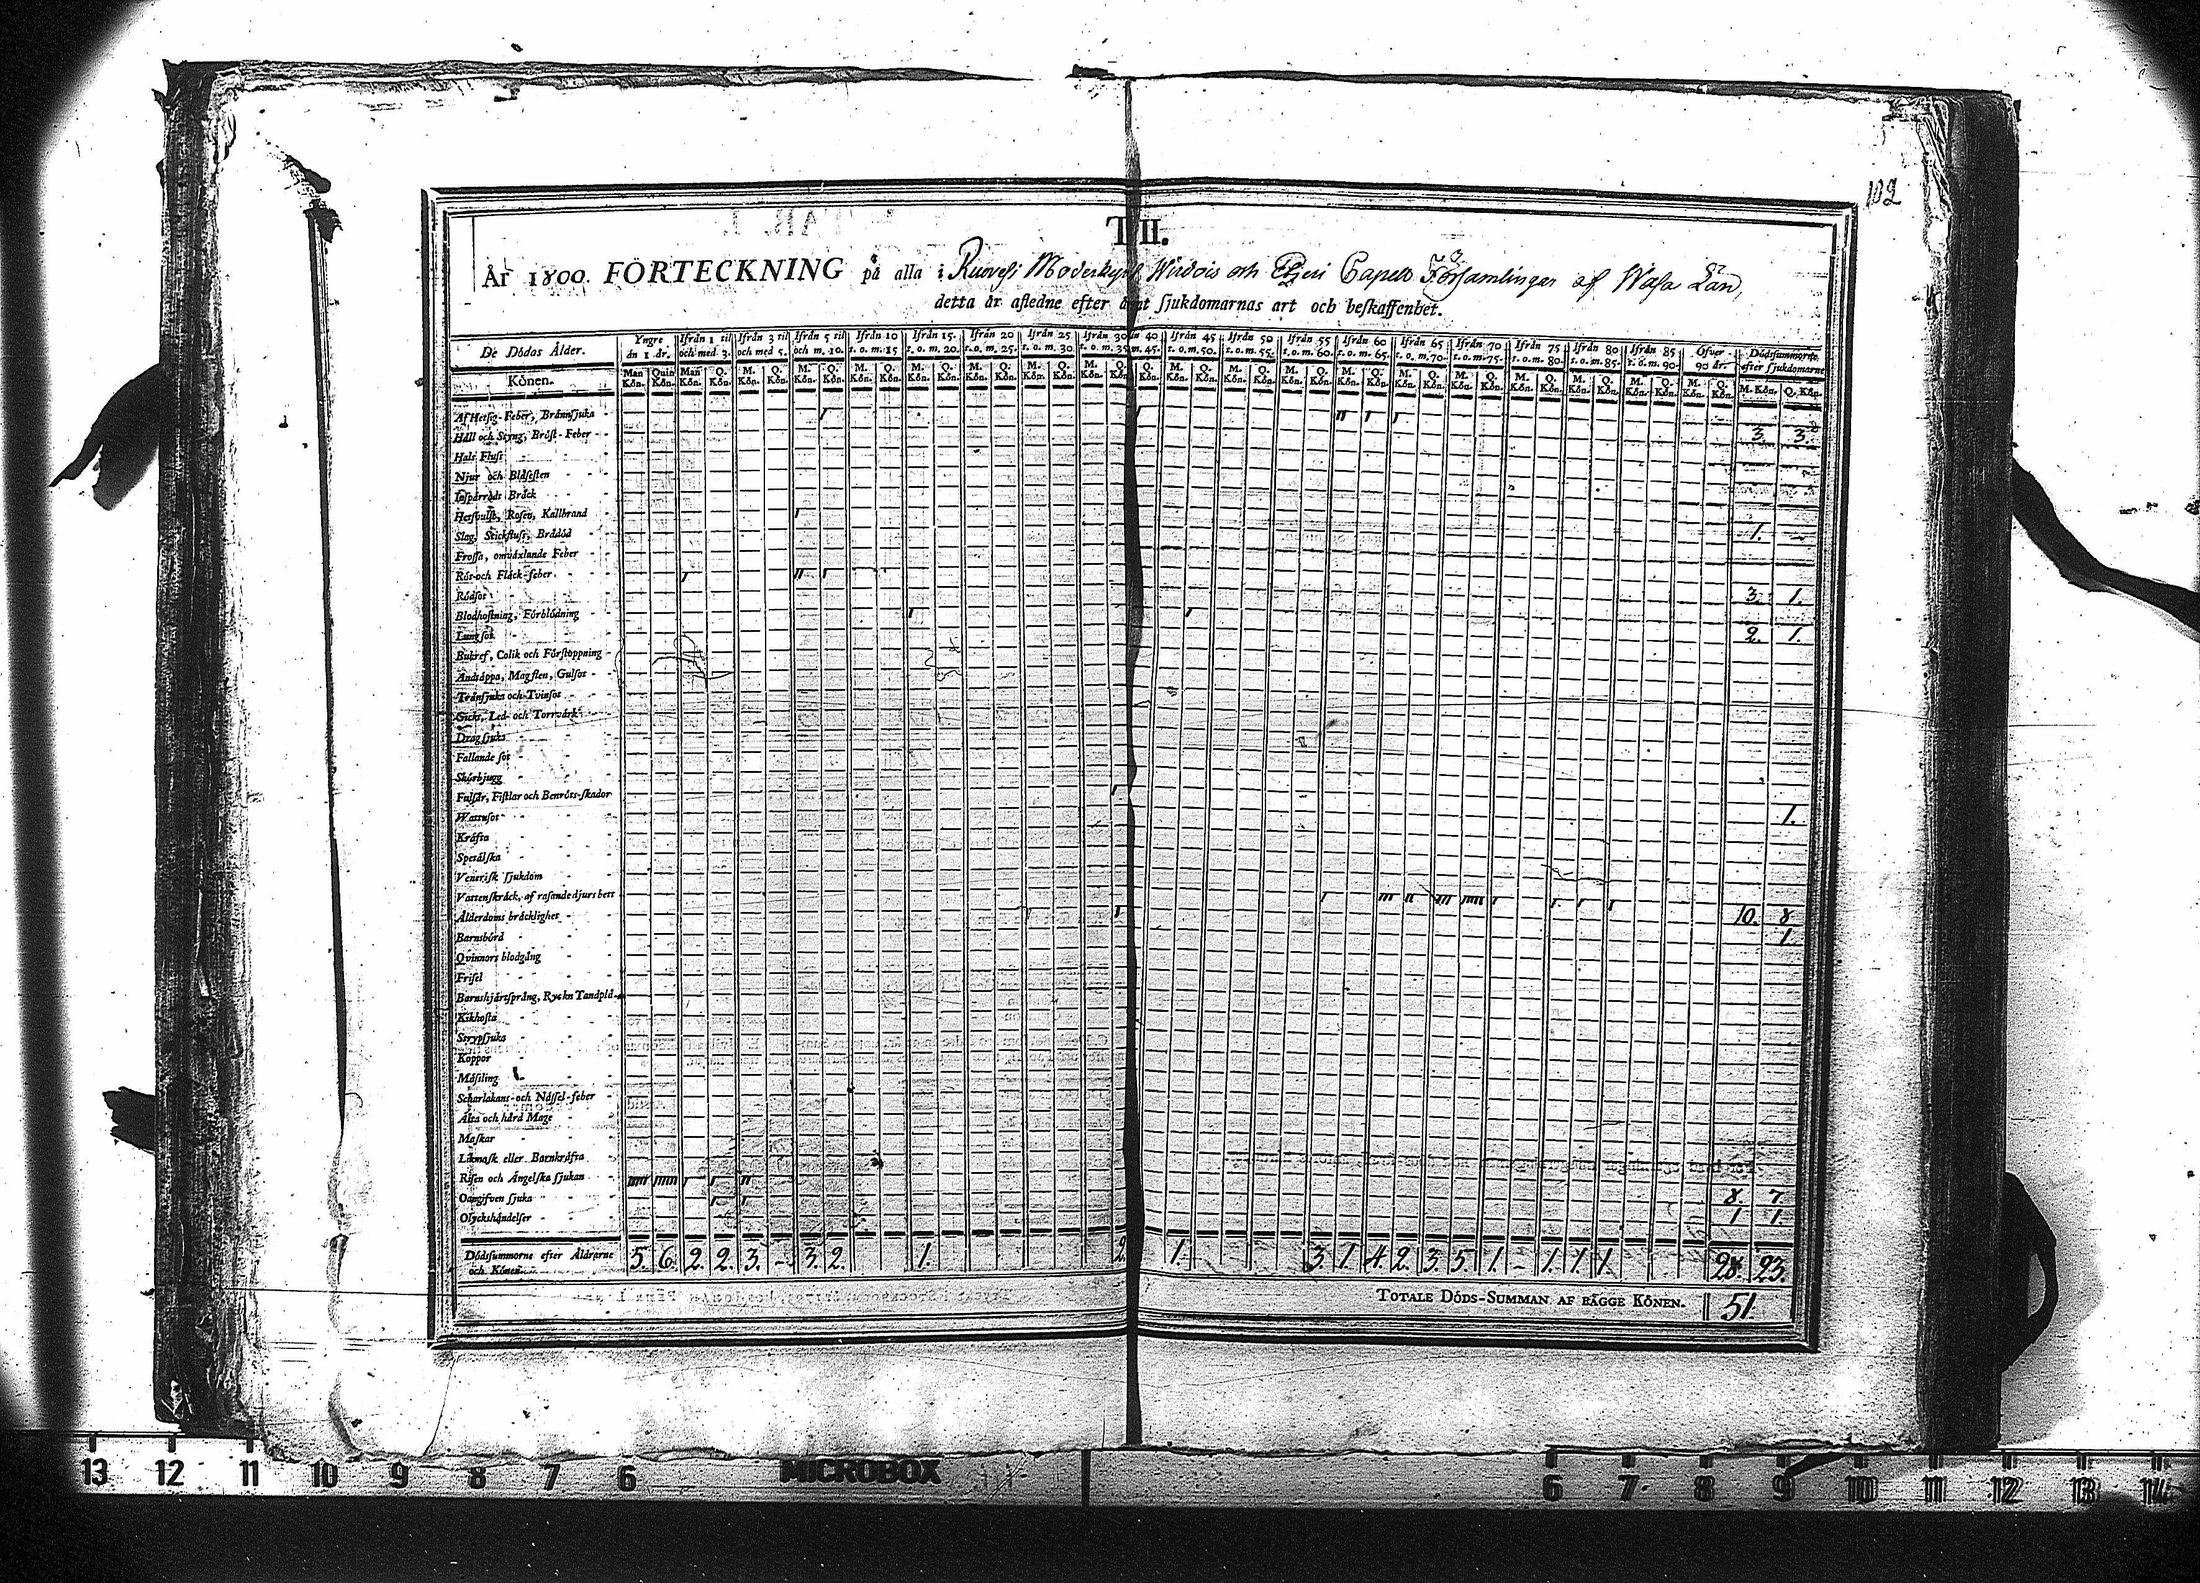 102
T II.
År 1800. FÖRTECKNING på alla i Ruovesi Moderkyrk Wirdois och Capell Församlingar af Wasa Län,
detta år afledne efter sjukdomarnas art och beskaffenhet.
De Dödas Ålder. Yngre än 1 år. Ifrån 1 til och med 3. Ifrån 3 til och med 5. Ifrån 5 til och m. 10. Ifrån 10 t. o. m. 15 Ifrån 15. t. o. m. 20. Ifrån 20 t. o. m. 25. Ifrån 25 t. o. m. 30. Ifrån 30 t. o. m. 35 40 m. 45. Ifrån 45 t. o. m. 50. Ifrån 50 t. o. m. 55. Ifrån 55 t. o. m. 60. Ifrån 60 t. o. m. 65. Ifrån 65 t. o. m. 70. Ifrån 70 t. o. m. 75. Ifrån 75 t. o. m. 80. Ifrån 80 t. o. m. 85. Ifrån 85 t. o. m. 90. Öfver 90 år. Dödsummorne efter sjukdomarne
Könen. Man Kön. Quin Kön. Man Kön. Q. Kön. M. Kön. Q. Kön. M. Kön. Q. Kön. M. Kön. Q. Kön. M. Kön. Q. Kön. M. Kön. Q. Kön. M. Kön. Q. Kön. M. Kön. Q. Kön. M. Kön. Q. Kön. M. Kön. Q. Kön. M. Kön. Q. Kön. M. Kön. Q. Kön. M. Kön. Q. Kön. M. Kön. Q. Kön. M. Kön. Q. Kön. M. Kön. Q. Kön. M. Kön. Q. Kön. M. Kön. Q. Kön.
Af Hetsig-Feber, Brännsjuka
Håll och Styng, Bröst-Feber 3. 3.
Hals Fluss
Njur och Blåsesten
Inspärradt Bråck
Hetsvulst, Rosen, Kallbrand
Slag, Stickfluss, Brådöd 1.
Frossa, omväxlande Feber
Röt-och Fläck-feber
Rödsot 3. 1.
Blodhostning, Förblödning
Lungsot 2. 1.
Bukref, Colik och Förstoppning
Andtäppa, Magsten, Gulsot
Tränsjuka och Tvinsot
Gickt, Led- och Torrvärk
Dragsjuka
Fallande sot
Skörbjugg
Fulsår, Fistlar och Benröts-skador
Wattusot 1.
Kräfta
Spetälska
Venerisk sjukdom
Vattenskräck, af rasande djurs bett
Ålderdoms bräcklighet 10. 8
Barnsbörd 1
Qvinnors blodgång
Frisel
Barnshjärtsprång, Ryckn Tandplå-
Kikhosta
Strypsjuka
Koppor
Mässling
Scharlakans- och Nässel-feber
Älta och hård Mage
Maskar
Likmask eller Barnkräfta
Risen och Ängelska sjukan
Oangifven sjuka 8 7
Olyckshändelser 1 1.
Dödssummorne efter Åldrarne och Könen. 5. 6. 2. 2. 3. - 3. 2. 1. 2. 1. 3. 1. 4. 2. 3. 5. 1. - 1. 1. 1. 28. 23.
TOTALE DÖDS-SUMMAN AF BÄGGE KÖNEN. 51.
13 12 11 10 9 8 7 6 MICROBOX 6 7 8 9 10 11 12 13 14